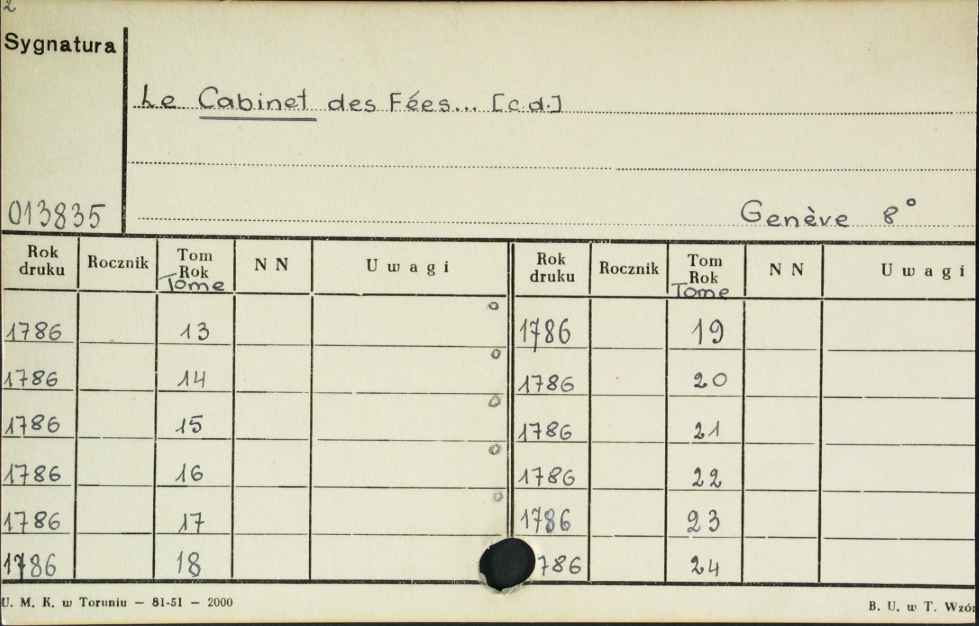 2
Sygnatura
Le Cabinet des Fées... [c.d.]
013835
Genève 8°
Rok druku Rocznik Tom Rok Tome N N Uwagi Rok druku Rocznik Tom Rok Tome N N Uwagi
1786 13 1786 19
1786 14 1786 20
1786 15 1786 21
1786 16 1786 22
1786 17 1786 23
1786 18 786 24
U. M. K. w Toruniu — 81-51 — 2000
B. U. w T. Wzór